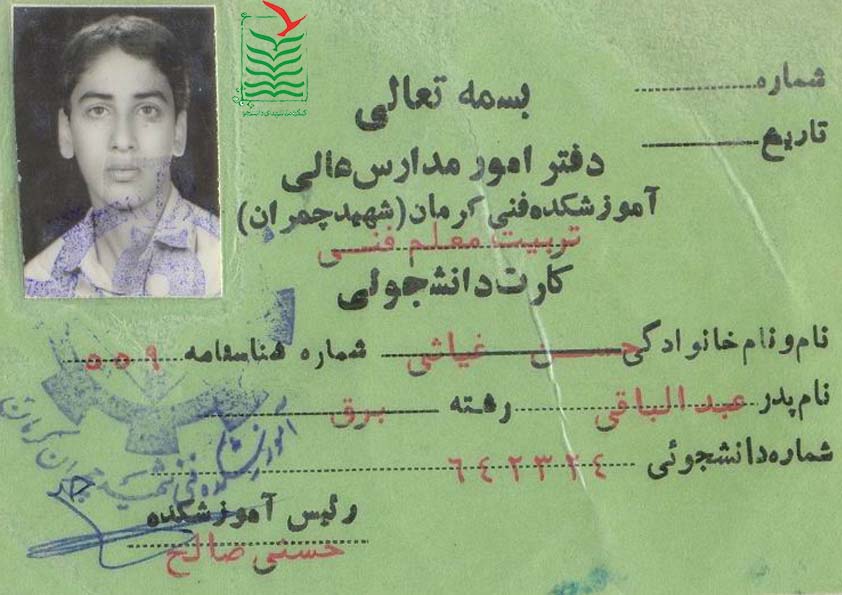 بسمه تعالی
شماره
تاریخ
دفتر امور مدارس عالی
آموزشکده فنی کرمان (شهید چمران)
تربیت معلم فنی
کارت دانشجوئی
نام و نام خانوادگی حسن غیاثی شماره شناسنامه ۵۵۹
نام پدر عبدالباقی رشته برق
شماره دانشجوئی ۶۴۲۳۲۴
رئیس آموزشکده
حسنی صالح
آموزشکده فنی شهید چمران کرمان